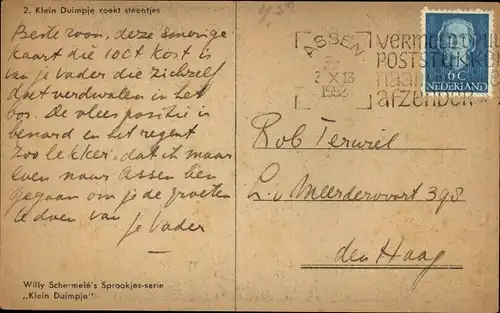 2. Klein Duimpje zoekt steentjes
Beste zoon, deze smerige
kaart die 10ct kost is
van je vader die zichzelf
doet verdwalen in het
bos. De vlees positie is
benard en het regent
zoo lekker, dat ik maar
even naar Assen ben
gegaan om je de groeten
te doen van
je Vader
Willy Schermelé's Sprookjes-serie
„Klein Duimpje"
ASSEN
X 13
1952
VERMELD
POSTSTUKKEN
afzender
6C
NEDERLAND
Rob Terwiel
L. v Meerdervoort 398
den Haag